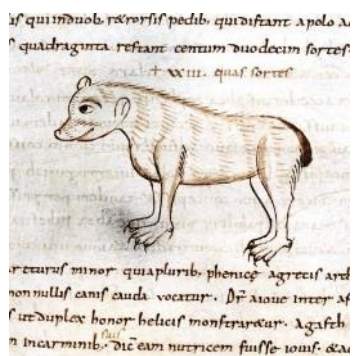 us qui induob, retrorsis pedib, qui distant a polo
s quadraginta restant centum duodecim sortes
+ xxiii. quas sortes
arcturus minor quia plurib, phenice agrestis
non nullis canis cauda vocatur. Dr̄ a iove inter
s ut duplex honor helicis monstraretur.
suis
n incarminib, dic̄ eam nutricem fuisse iovis. &